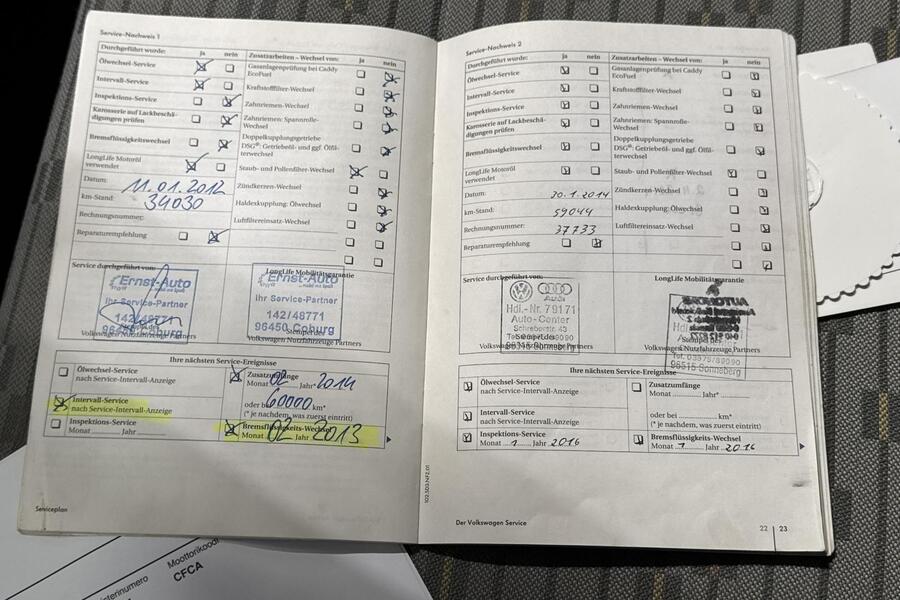 Service-Nachweis 1
Durchgeführt wurde: ja nein
Ölwechsel-Service
Intervall-Service
Inspektions-Service
Karosserie auf Lackbeschä-
digungen prüfen
Bremsflüssigkeitswechsel
LongLife Motoröl
verwendet
Datum: 11.01.2012
km-Stand: 34030
Rechnungsnummer:
Reparaturempfehlung
Zusatzarbeiten – Wechsel von: ja nein
Gasanlagenprüfung bei Caddy
EcoFuel
Kraftstofffilter-Wechsel
Zahnriemen-Wechsel
Zahnriemen: Spannrolle-
Wechsel
Doppelkupplungsgetriebe
DSG®: Getriebeöl- und ggf. Ölfil-
terwechsel
Staub- und Pollenfilter-Wechsel
Zündkerzen-Wechsel
Haldexkupplung: Ölwechsel
Luftfiltereinsatz-Wechsel
Service durchgeführt von:
Ernst-Auto
Ihr Service-Partner
142/48771
96450 Coburg
Volkswagen Nutzfahrzeuge Partners
LongLife Mobilitätsgarantie
Ernst-Auto
Ihr Service-Partner
142/48771
96450 Coburg
Stempel des
Volkswagen Nutzfahrzeuge Partners
Ihre nächsten Service-Ereignisse
Ölwechsel-Service
nach Service-Intervall-Anzeige
Zusatzumfänge
Monat 02 Jahr 2014
oder bei 60000 km*
(* je nachdem, was zuerst eintritt)
Intervall-Service
nach Service-Intervall-Anzeige
Inspektions-Service
Monat Jahr
Bremsflüssigkeits-Wechsel
Monat 02 Jahr 2013
Serviceplan
Service-Nachweis 2
Durchgeführt wurde: ja nein
Ölwechsel-Service
Intervall-Service
Inspektions-Service
Karosserie auf Lackbeschä-
digungen prüfen
Bremsflüssigkeitswechsel
LongLife Motoröl
verwendet
Datum: 30.1.2014
km-Stand: 59044
Rechnungsnummer: 37733
Reparaturempfehlung
Zusatzarbeiten – Wechsel von: ja nein
Gasanlagenprüfung bei Caddy
EcoFuel
Kraftstofffilter-Wechsel
Zahnriemen-Wechsel
Zahnriemen: Spannrolle-
Wechsel
Doppelkupplungsgetriebe
DSG®: Getriebeöl- und ggf. Ölfil-
terwechsel
Staub- und Pollenfilter-Wechsel
Zündkerzen-Wechsel
Haldexkupplung: Ölwechsel
Luftfiltereinsatz-Wechsel
Service durchgeführt von:
Audi
Hdl.-Nr. 79171
Auto-Center
Schreberstr. 43
Stempel des
Volkswagen Nutzfahrzeuge Partners
96515 Sonneberg
LongLife Mobilitätsgarantie
Stempel des
Volkswagen Nutzfahrzeuge Partners
96515 Sonneberg
Ihre nächsten Service-Ereignisse
Ölwechsel-Service
nach Service-Intervall-Anzeige
Zusatzumfänge
Monat Jahr*
oder bei km*
(* je nachdem, was zuerst eintritt)
Intervall-Service
nach Service-Intervall-Anzeige
Inspektions-Service
Monat 1 Jahr 2016
Bremsflüssigkeits-Wechsel
Monat 1 Jahr 2016
Der Volkswagen Service
22 23
Moottorikoodi
CFCA